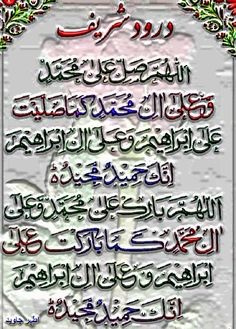 درود شریف
اللهم صل على محمد
وعلى ال محمد كما صليت
على ابراهيم وعلى ال ابراهيم
انك حميد مجيده
اللهم بارك على محمد وعلى
ال محمد كما باركت على
ابراهيم وعلى ال ابراهيم
انك حميد مجيده
اظہر جاوید